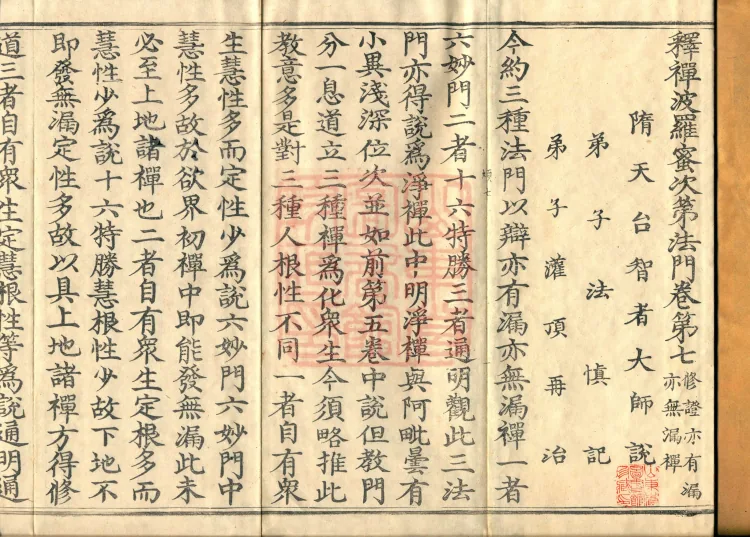 釋禪波羅蜜次第法門卷第七 修證亦有漏
亦無漏禪
隋天台智者大師說
弟子法慎記
弟子灌頂再治
今約三種法門以辯亦有漏亦無漏禪一者
六妙門二者十六特勝三者通明觀此三法
門亦得說爲淨禪此中明淨禪與阿毗曇有
小異淺深位次並如前第五卷中說但教門
分一息道立三種禪爲化衆生今須略推此
教意多是對三種人根性不同一者自有衆
生慧性多而定性少爲說六妙門六妙門中
慧性多故於欲界初禪中即能發無漏此未
必至上地諸禪也二者自有衆生定根多而
慧性少爲說十六特勝慧根性少故下地不
即發無漏定性多故以具上地諸禪方得修
道三者自有衆生定慧根性等爲說通明通